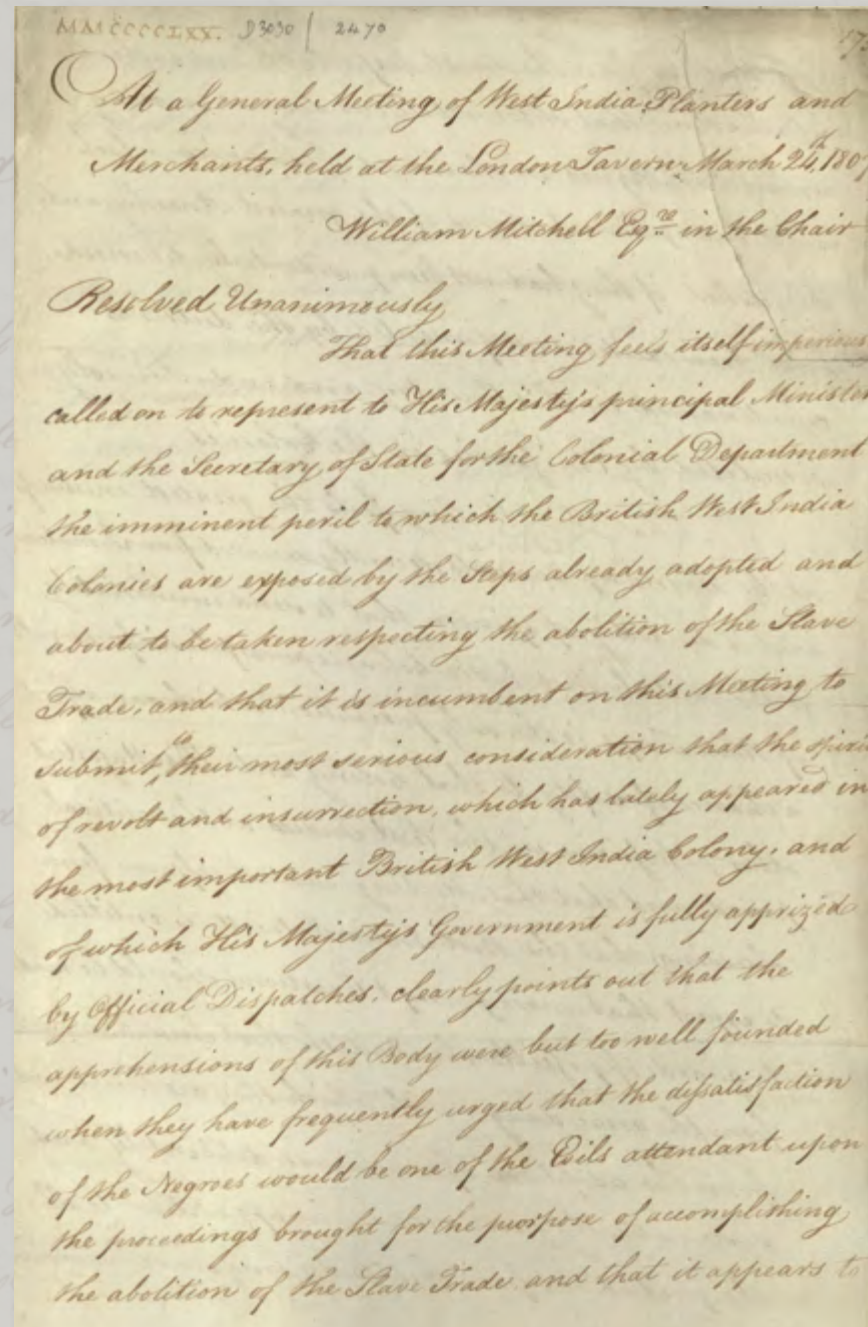 MMCCCCLXX. D3030 / 2470
At a General Meeting of West India Planters and
Merchants, held at the London Tavern March 24th, 180
William Mitchell Esqre in the Chair
Resolved Unanimously
That this Meeting feels itself imperious
called on to represent to His Majesty's principal Minister
and the Secretary of State for the Colonial Department
the imminent peril to which the British West India
Colonies are exposed by the Steps already adopted and
about to be taken respecting the abolition of the Slave
Trade, and that it is incumbent on this Meeting to
submit, to their most serious consideration that the spirit
of revolt and insurrection, which has lately appeared in
the most important British West India Colony, and
of which His Majesty's Government is fully apprized
by Official Dispatches, clearly points out that the
apprehensions of this Body were but too well founded
when they have frequently urged that the dissatisfaction
of the Negroes would be one of the Evils attendant upon
the proceedings brought for the purpose of accomplishing
the abolition of the Slave Trade, and that it appears to